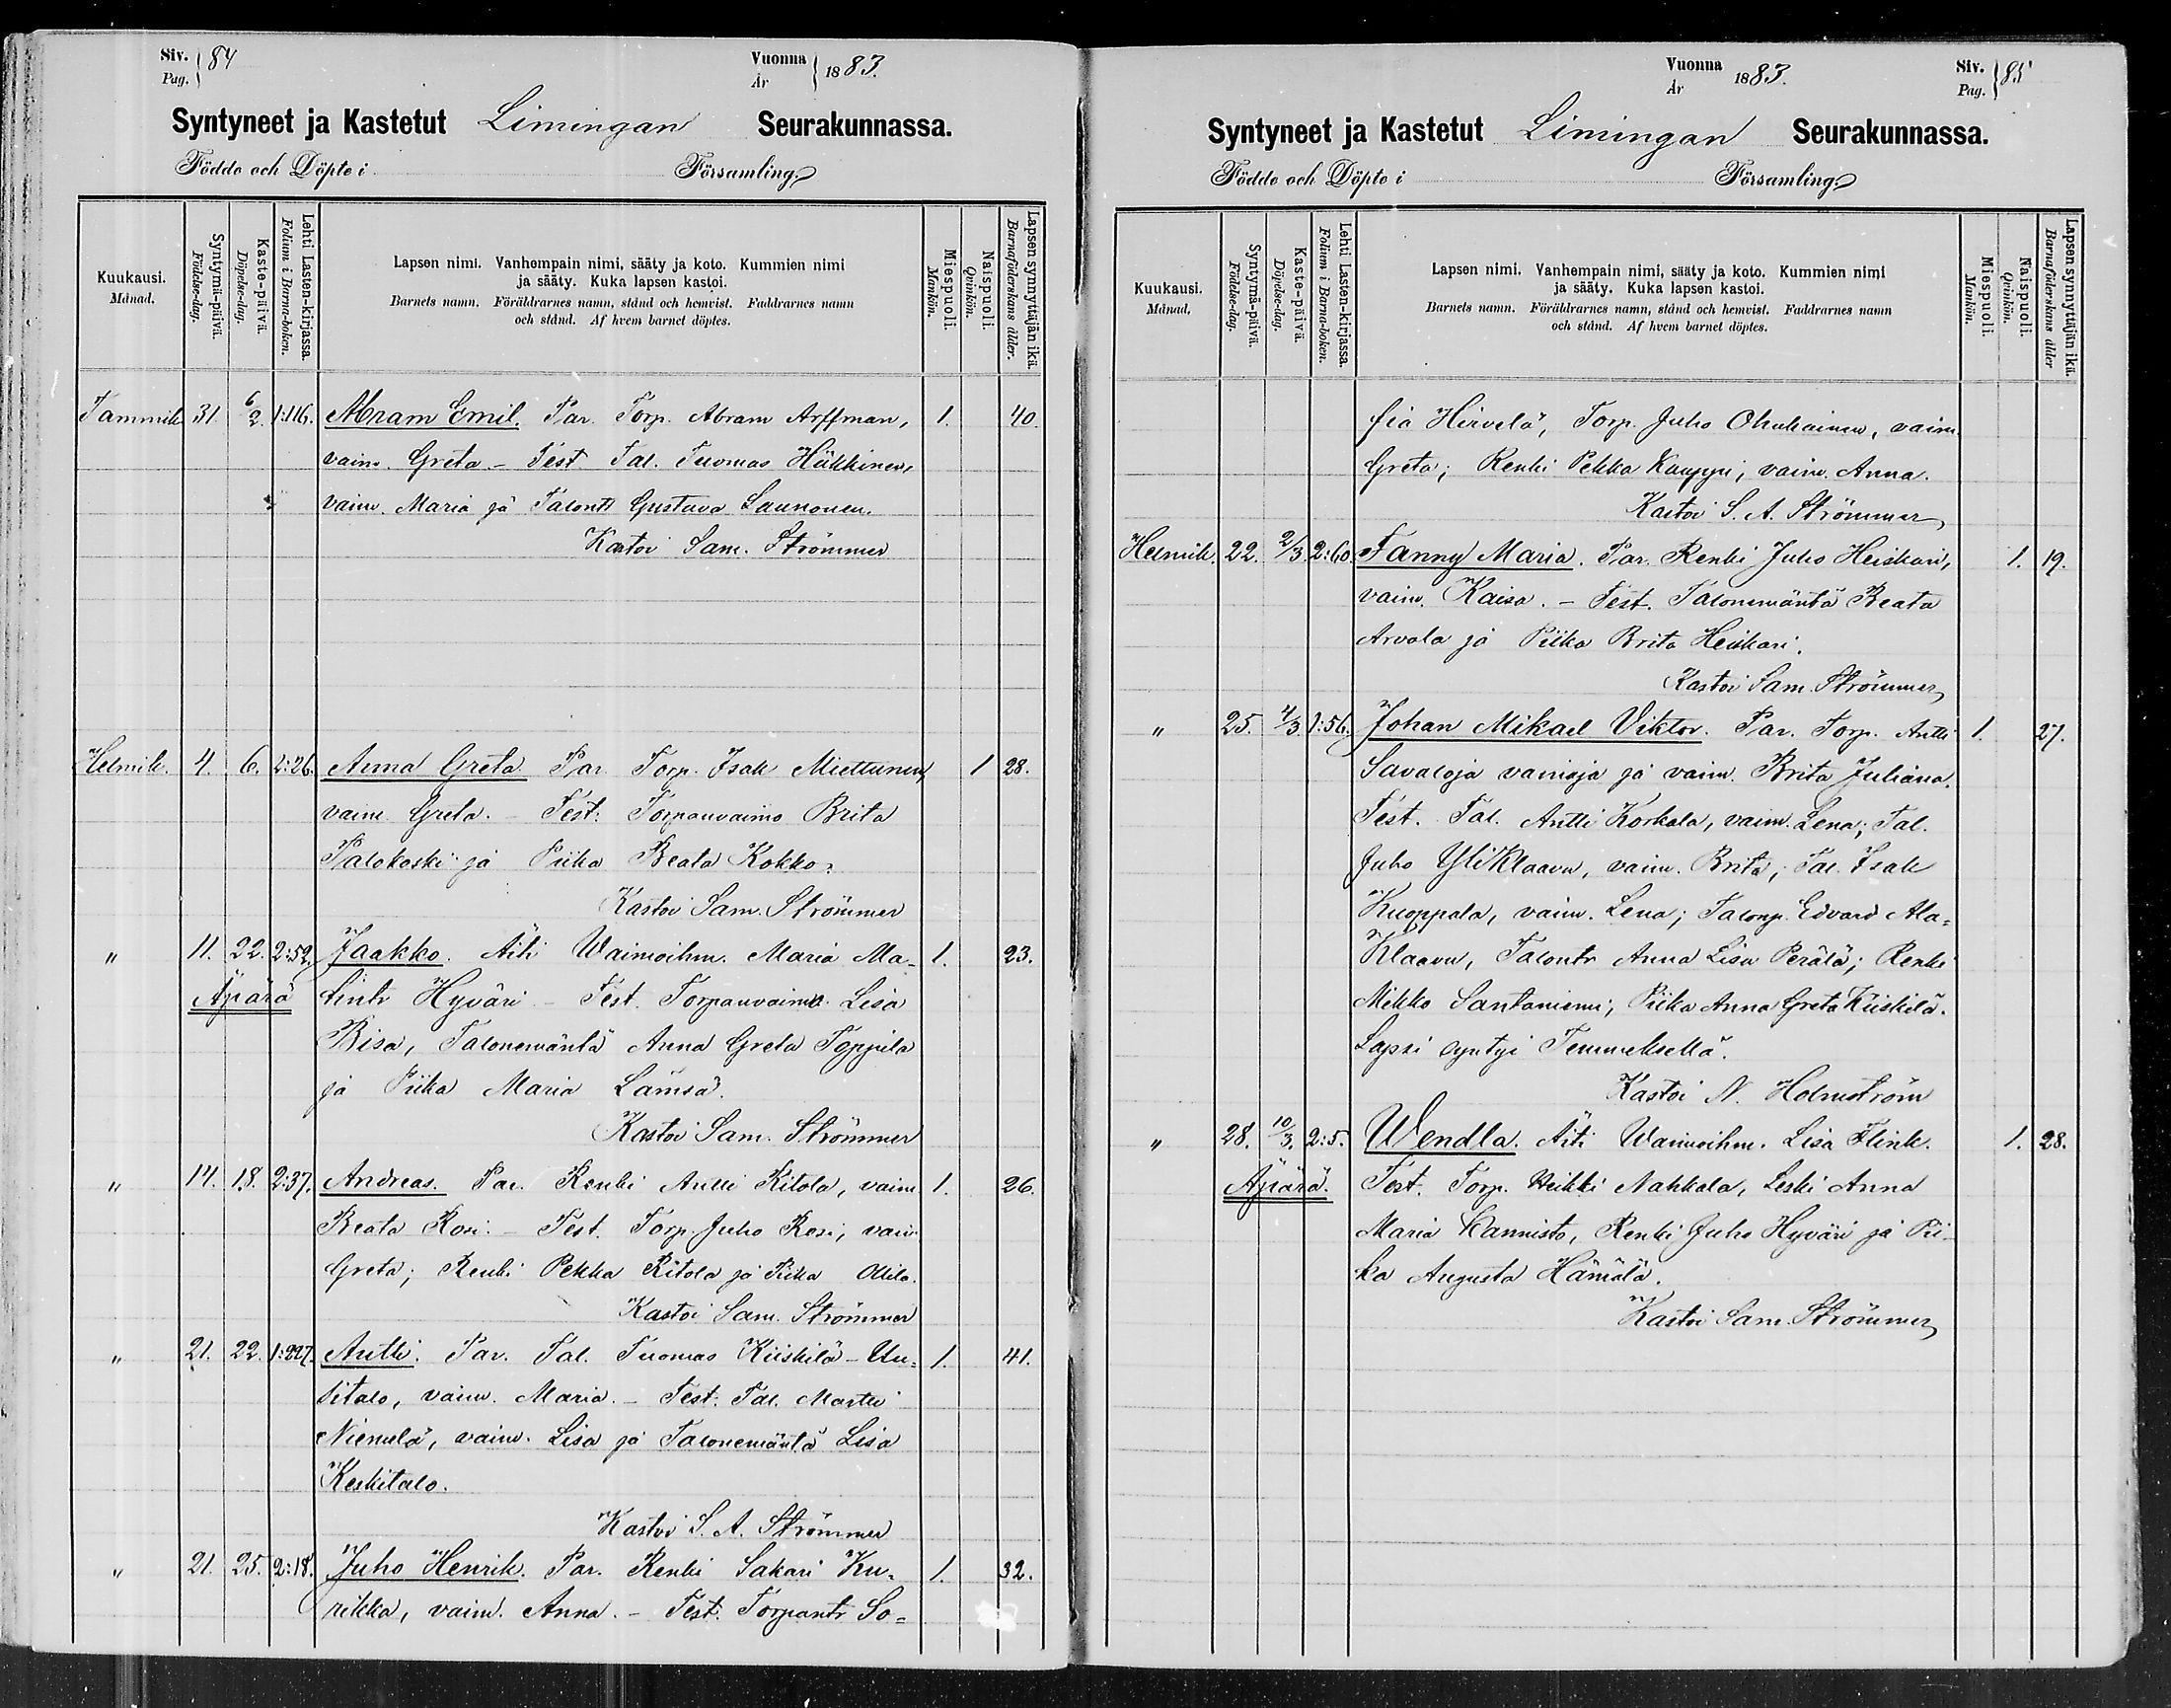 Siv. 84
Pag.
Vuonna 1883.
År
Syntyneet ja Kastetut Limingan Seurakunnassa.
Födde och Döpte i Församling
Kuukausi.
Månad.
Syntymä-päivä.
Födelse-dag.
Kaste-päivä.
Döpelse-dag.
Lehti Lasten-kirjassa.
Folium i Barna-boken.
Lapsen nimi. Vanhempain nimi, sääty ja koto. Kummien nimi
ja sääty. Kuka lapsen kastoi.
Barnets namn. Föräldrarnes namn, stånd och hemvist. Faddrarnes namn
och stånd. Af hvem barnet döptes.
Miespuoli.
Mankön.
Naispuoli.
Qvinkön.
Lapsensynnyttäjän ikä.
Barnaföderskans ålder.
Tammik 31. 6/2. 1:116. Abram Emil. Par. Torp. Abram Arffman, 1. 40.
vaim. Greta. – Test Tal. Tuomas Häkkinen,
vaim. Maria ja Talontr Gustava Launonen.
Kastoi Sam. Strömmer
Helmik. 4. 6. 2:26. Anna Greta Par. Torp. Isak Miettunen, 1 28.
vaim Greta. – Test: Torpanvaimo Brita
Palokoski ja Piika Beata Kokko.
Kastoi Sam. Strömmer
" 11. 22. 2:52. Jaakko. Äiti Waimoihm. Maria Ma- 1. 23.
Äpärä tintr Hyväri – Test. Torpanvaimo Lisa
Bisa, Talonemäntä Anna Greta Toppila
ja Piika Maria Lämsä.
Kastoi Sam. Strömmer
" 14. 18. 2:37. Andreas. Par. Renki Antti Kitola, vaim 1. 26.
Beata Kosi. – Test. Torp. Juho Kosi, vaim
Greta; Renki Pekka Kitola ja Piika Ollila.
Kastoi Sam. Strömmer
" 21. 22. 1:227. Antti. Par. Tal. Tuomas Kiiskilä-Uu- 1. 41.
sitalo, vaim. Maria. – Test: Tal. Martti
Niemelä, vaim. Lisa ja Talonemäntä Lisa
Keskitalo.
Kastoi S. A. Strömmer
" 21. 25. 2:18. Juho Henrik. Par. Renki Sakari Ku- 1. 32.
rikka, vaim. Anna. – Test. Torpantr So-
Vuonna 1883.
År
Siv. 85
Pag.
Syntyneet ja Kastetut Limingan Seurakunnassa.
Födde och Döpte i Församling
Kuukausi.
Månad.
Syntymä-päivä.
Födelse-dag.
Kaste-päivä.
Döpelse-dag.
Lehti Lasten-kirjassa.
Folium i Barna-boken.
Lapsen nimi. Vanhempain nimi, sääty ja koto. Kummien nimi
ja sääty. Kuka lapsen kastoi.
Barnets namn. Föräldrarnes namn, stånd och hemvist. Faddrarnes namn
och stånd. Af hvem barnet döptes.
Miespuoli.
Mankön.
Naispuoli.
Qvinkön.
Lapsensynnyttäjän ikä.
Barnaföderskans ålder
fia Hirvelä, Torp. Juho Ohukainen, vaim.
Greta; Renki Pekka Kauppi, vaim. Anna.
Kastoi S. A. Strömmer
Helmik. 22. 2/3. 2:60. Fanny Maria. Par. Renki Juho Heiskari, 1. 19.
vaim. Kaisa. – Test. Talonemäntä Beata
Arvola ja Piika Brita Heiskari.
Kastoi Sam. Strömmer
" 25. 4/3. 1:56. Johan Mikael Viktor. Par. Torp. Antti 1. 27.
Savaloja vainaja ja vaim. Brita Juliana.
Test. Tal. Antti Korkala, vaim. Lena; Tal.
Juho YliKlaavu, vaim. Brita; Tal. Isak
Kuoppala, vaim. Lena; Talonp. Edvard Ala-
Klaavu, Talontr Anna Lisa Perälä; Renki
Mikko Santaniemi; Piika Anna Greta Kiiskilä.
Lapsi syntyi Temmeksellä.
Kastoi N. Holmström
" 28. 10/3. 2:5. Wendla. Äiti Waimoihm. Lisa Flink. 1. 28.
Äpärä. Test. Torp. Heikki Nahkala, Leski Anna
Maria Kannisto, Renki Juho Hyväri ja Pii-
ka Augusta Hämälä.
Kastoi Sam. Strömmer